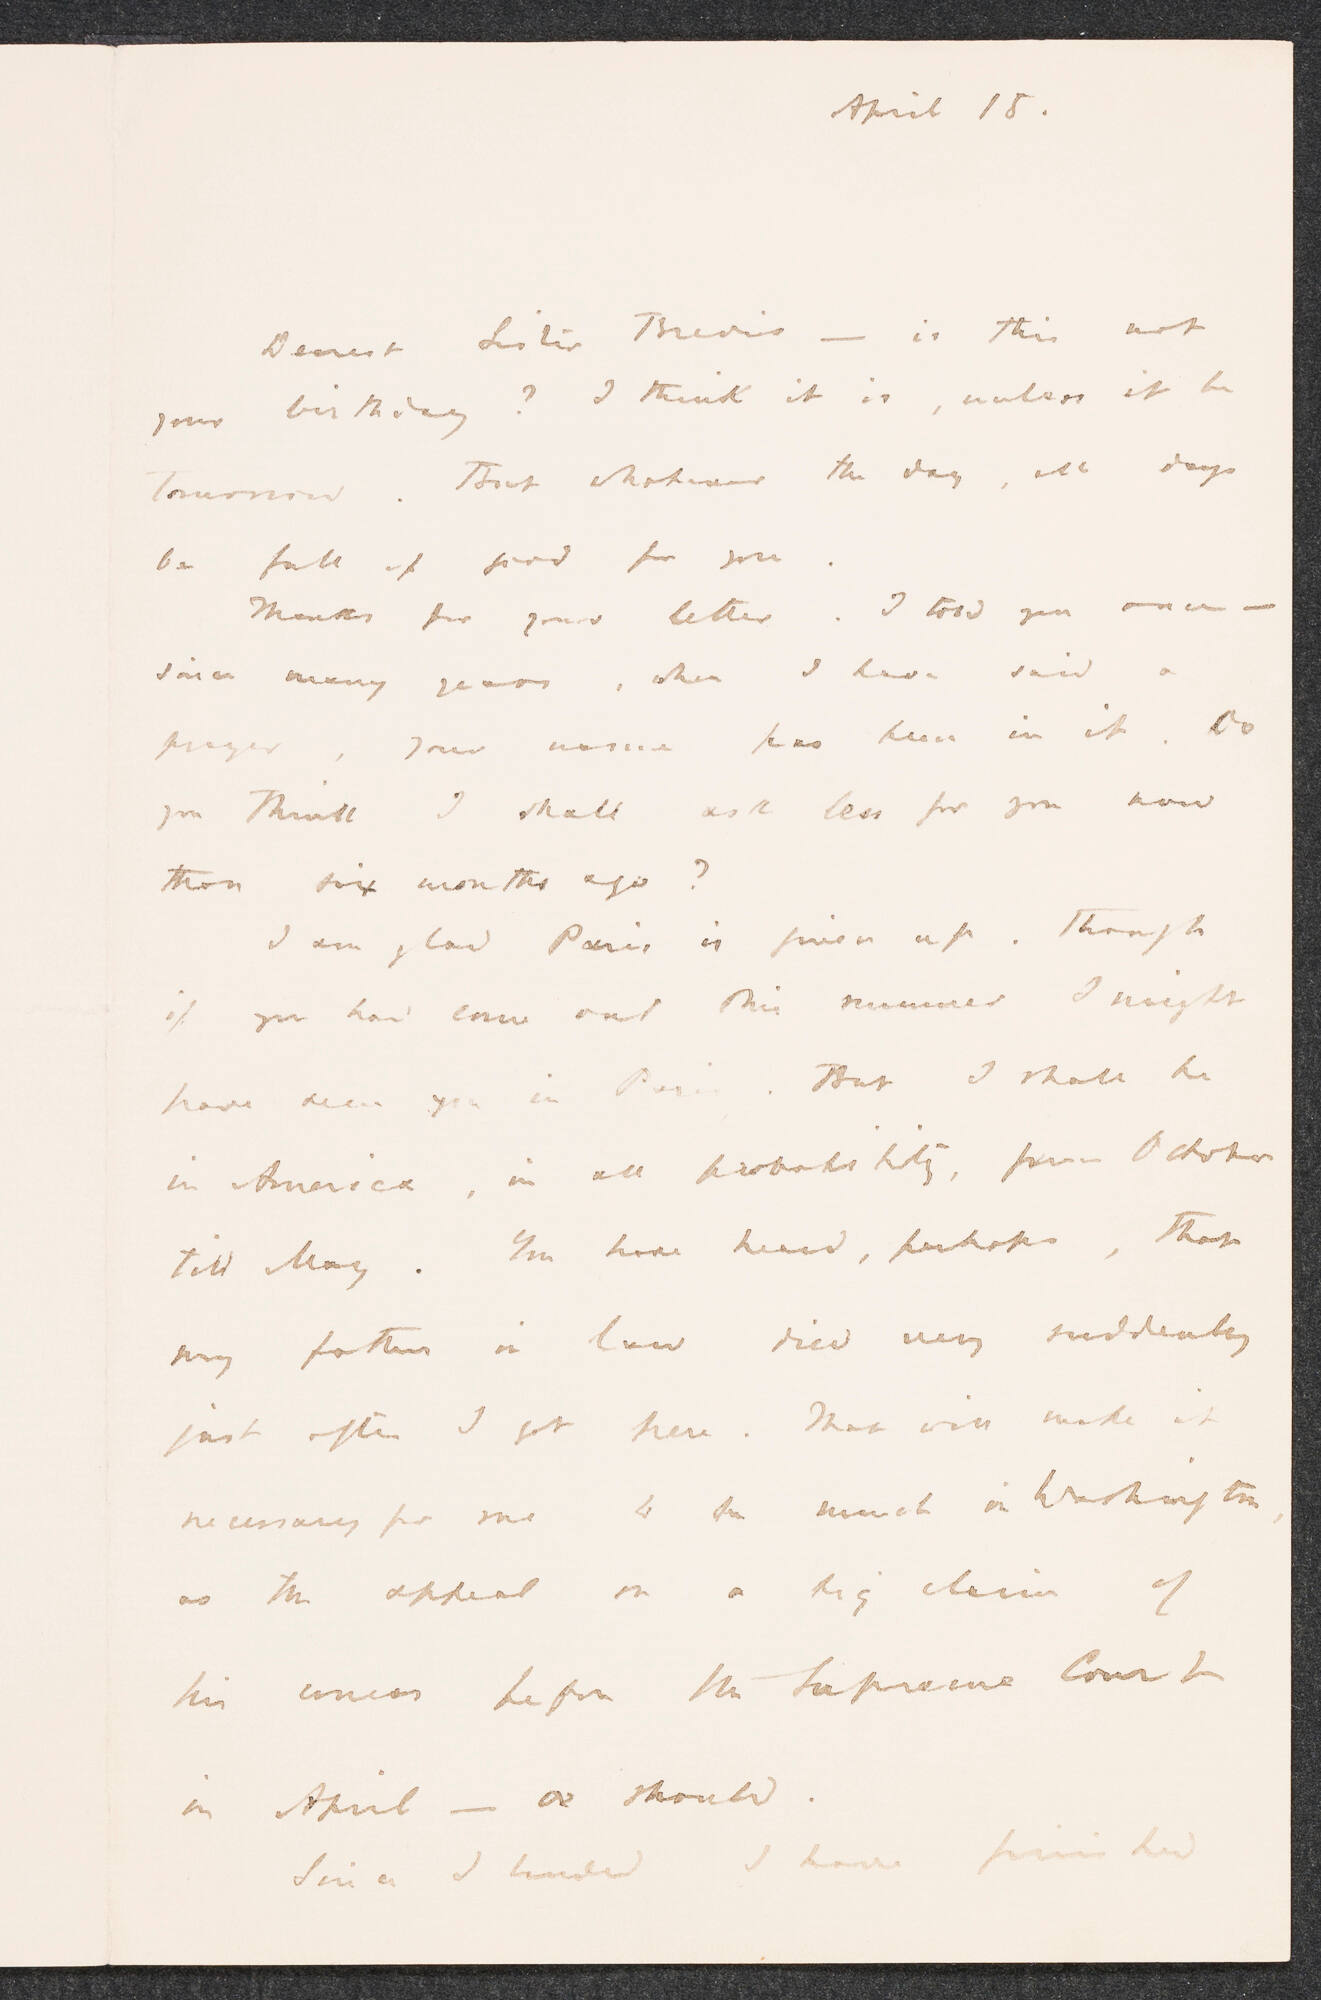 April 15.
Dearest Sister Brevis — is this not
your birthday? I think it is, unless it be
Tomorrow. But whatever the day, all days
be full of good for you.
Thanks for your letter. I told you once —
since many years, when I have said a
prayer, your name has been in it. Do
you think I shall ask less for you now
than six months ago?
I am glad Paris is given up. Though
if you had come out this summer I might
have seen you in Paris. But I shall be
in America, in all probability, from October
till May. You have heard, perhaps, that
my father in law died very suddenly
just after I got here. That will make it
necessary for me to be much in Washington,
as the appeal on a big claim of
his comes before the Supreme Court
in April — or should.
Since I landed I have finished